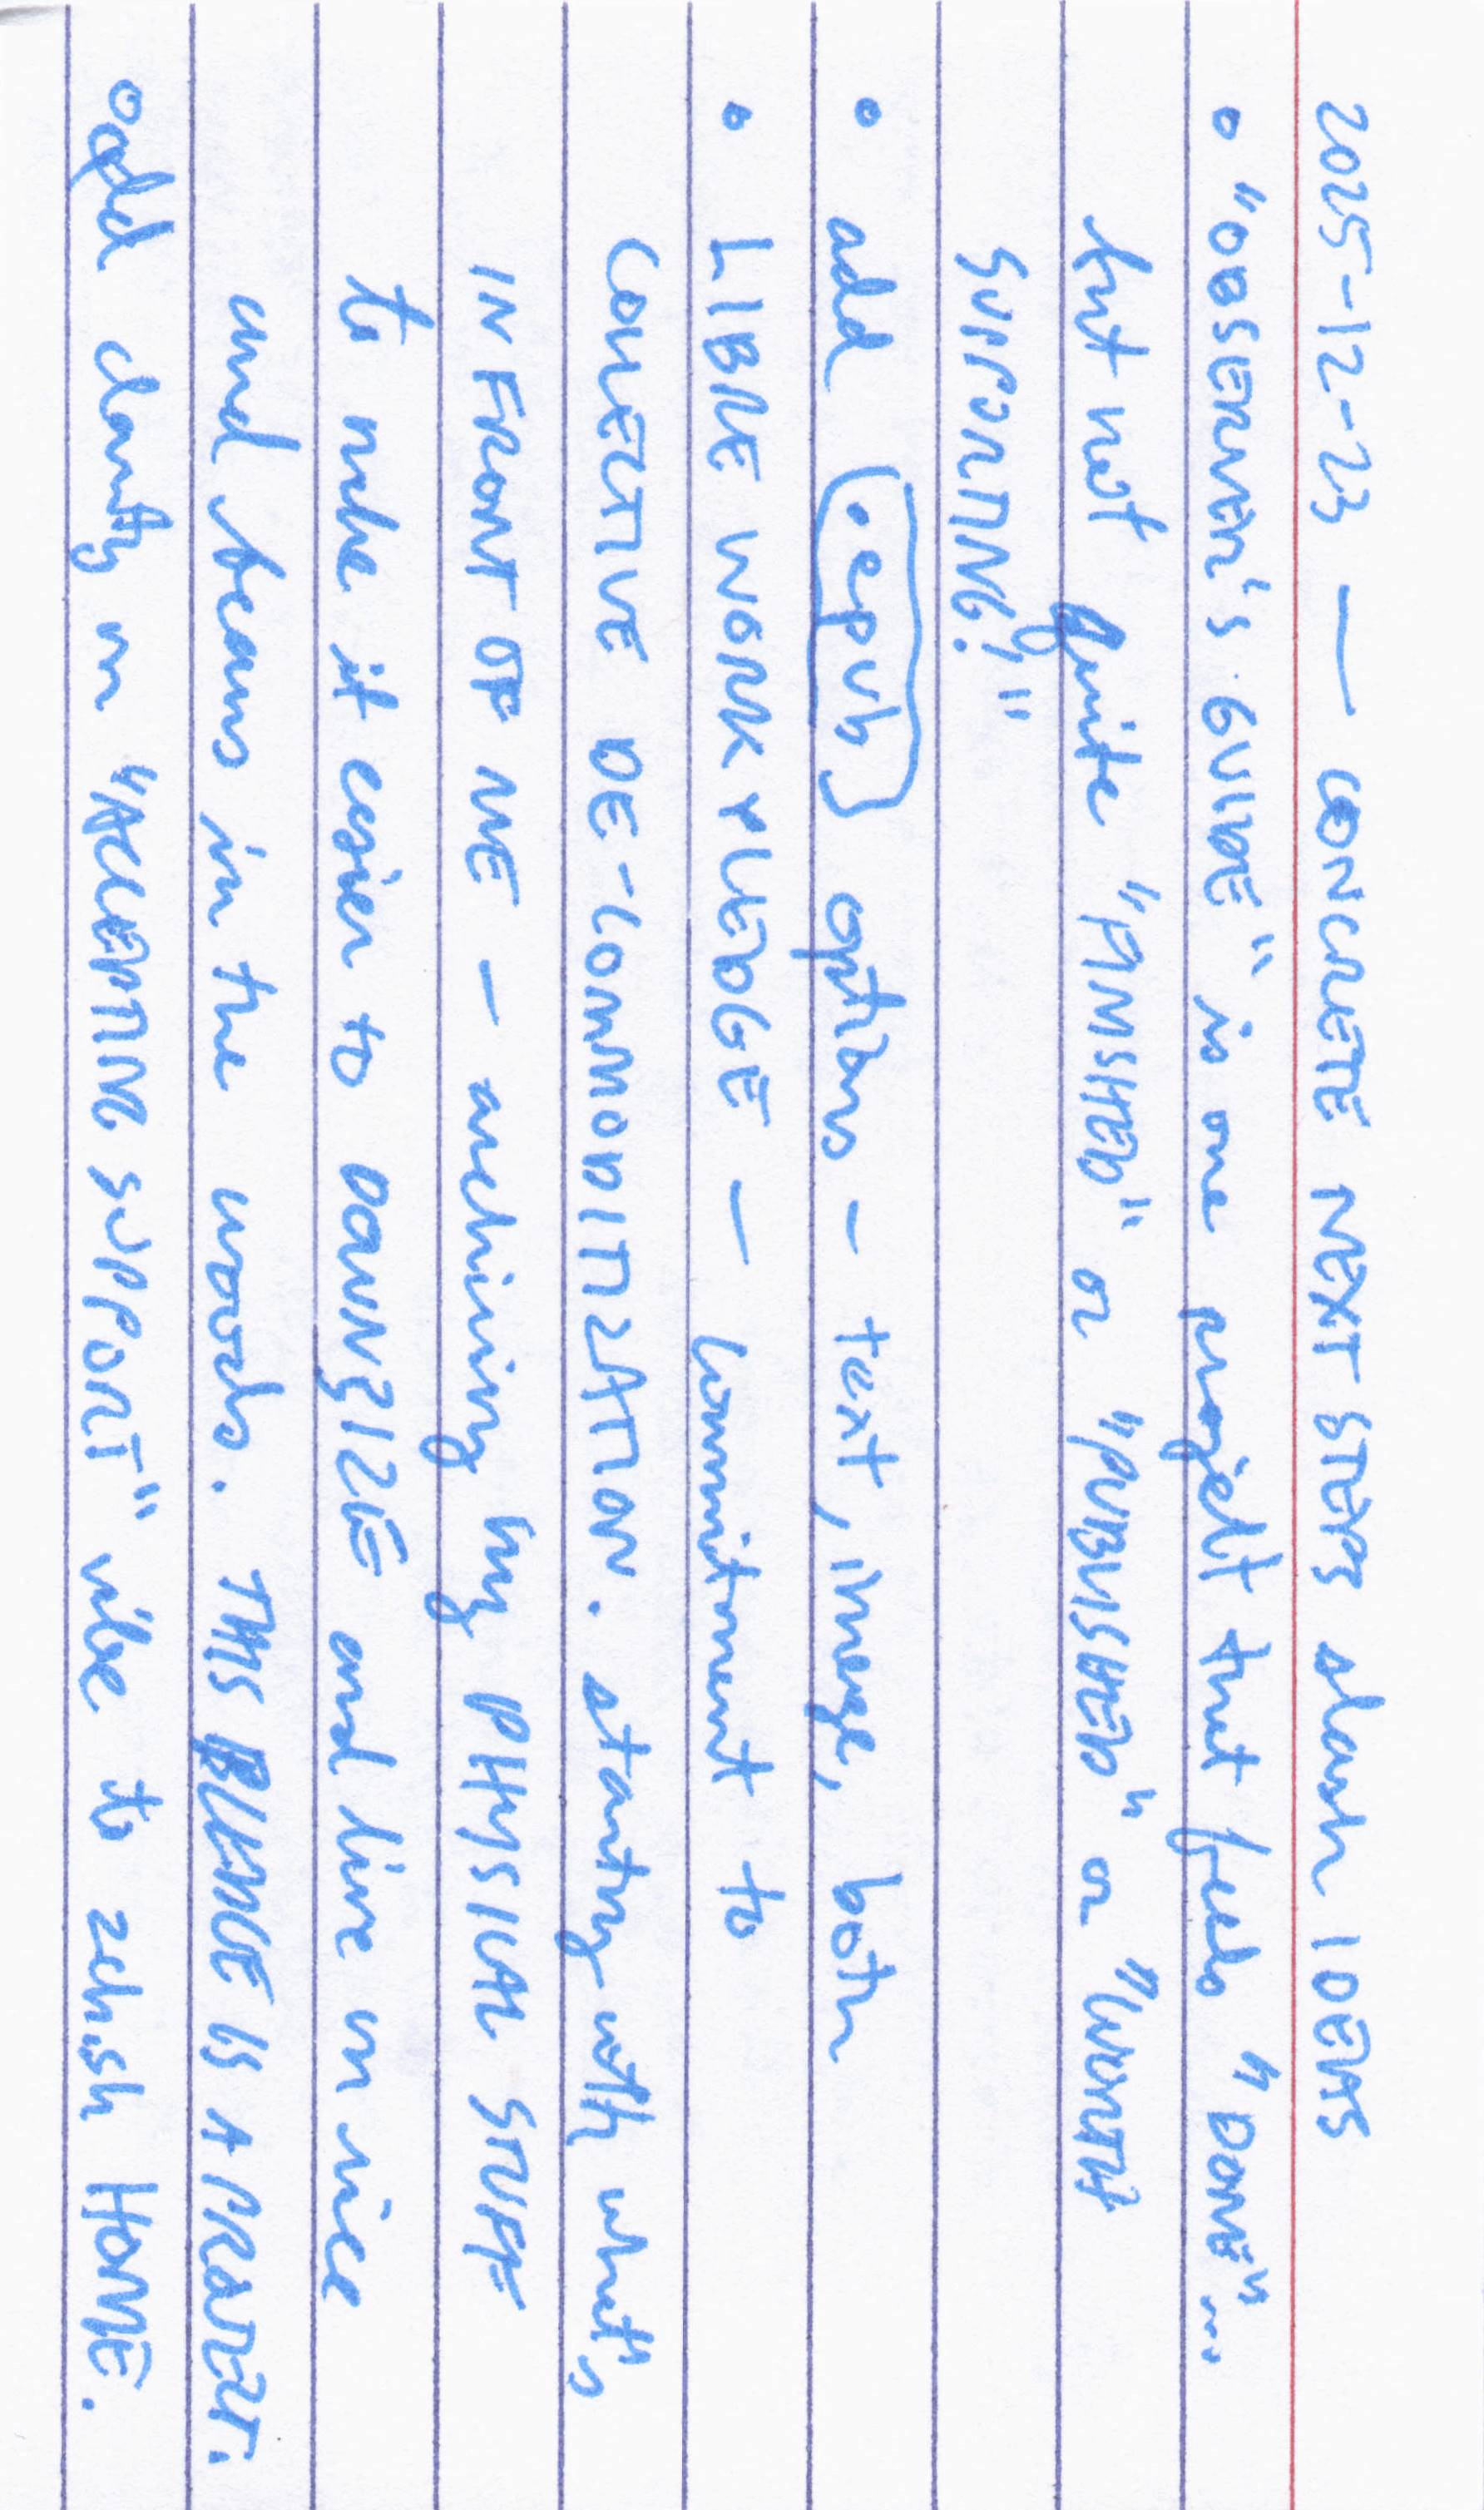 2025-12-23 — CONCRETE NEXT STEPS slash IDEAS
• "OBSERVER'S GUIDE" is one project that feels "DONE"...
but not quite "FINISHED" or "PUBLISHED" or "WORTH
SUPPORTING!"
• add (.epub) options - text, image, both
• LIBRE WORK PLEDGE — commitment to
COLLECTIVE DE-COMMODITIZATION. starting with what's
IN FRONT OF ME — archiving my PHYSICAL STUFF
to make it easier to and live on rice
and beans in the woods. THIS IS A
• add clarity on "ACCEPTING SUPPORT" vibe to zch.sh HOME.